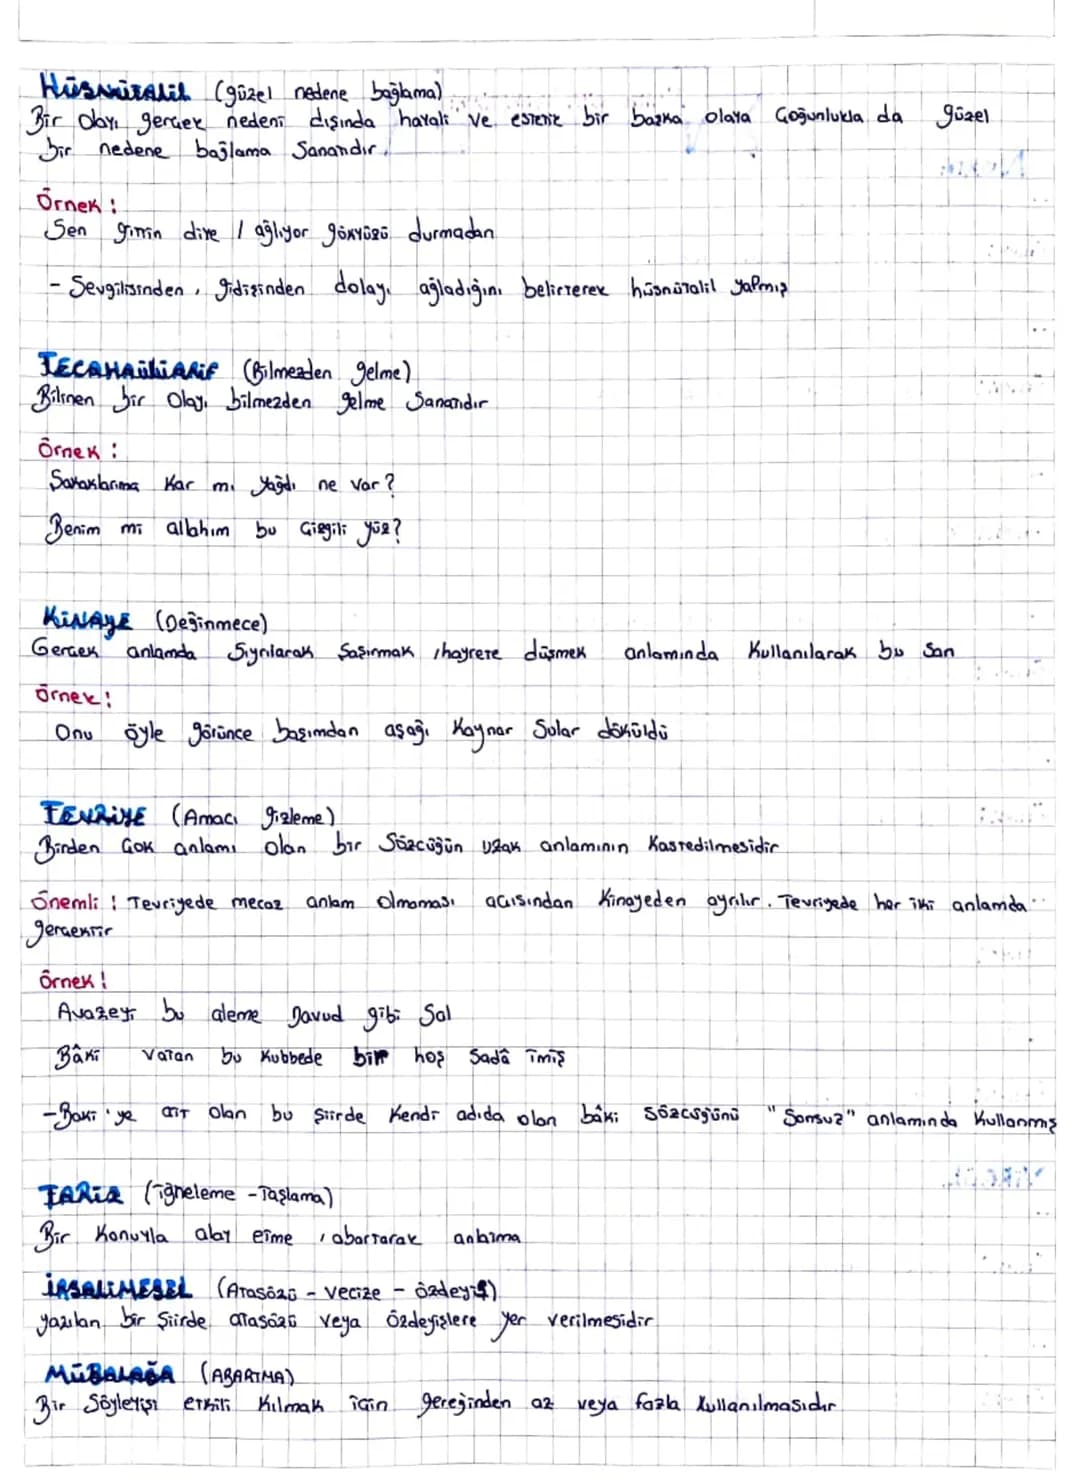 HÜSNÜTALİL (güzel nedene bağlama)
Bir olayı gerçek nedeni dışında hayali ve estetik bir başka olaya Çoğunlukla da güzel
bir nedene bağlama Sanatıdır.
Örnek:
Sen gittin diye / ağlıyor gökyüzü durmadan
- Sevgilisinden, gidişinden dolayı ağladığını belirterek hüsnütalil yapmış
TECAHAÜLÜARİF (Bilmezden gelme)
Bilinen bir Olayı bilmezden gelme Sanatıdır
Örnek:
Şakaklarıma Kar mı Yağdı ne var?
Benim mi allahım bu Çizgili yüz?
KİNAYE (Değinmece)
Gerçek anlamda Sıyrılarak Şaşırmak, hayrete düşmek anlamında Kullanılarak bu San
Örnek:
Onu öyle görünce başımdan aşağı Kaynar Sular döküldü
TEVRİYE (Amacı gizleme)
Birden Çok anlamı olan bir Sözcüğün uzak anlamının Kastedilmesidir
Önemli! Tevriyede mecaz anlam olmaması açısından Kinayeden ayrılır. Tevriyede her iki anlamda
gerçektir
Örnek!
Avazeyi bu aleme Davud gibi Sal
Bâki Vatan bu Kubbede bir hoş Sadâ imiş
- Baki'ye ait olan bu Şiirde Kendi adıda olan bâki Sözcüğünü "Sonsuz" anlamında Kullanmış
TARİZ (iğneleme - Taşlama)
Bir Konuyla alay etme, abartarak anlatma
İRSALİMESEL (Atasözü - vecize - özdeyiş)
yazılan bir Şiirde atasözü veya Özdeyişlere yer verilmesidir
MÜBALAĞA (ABARTMA)
Bir Söyleyişi etkili Kılmak için gereğinden az veya fazla Kullanılmasıdır